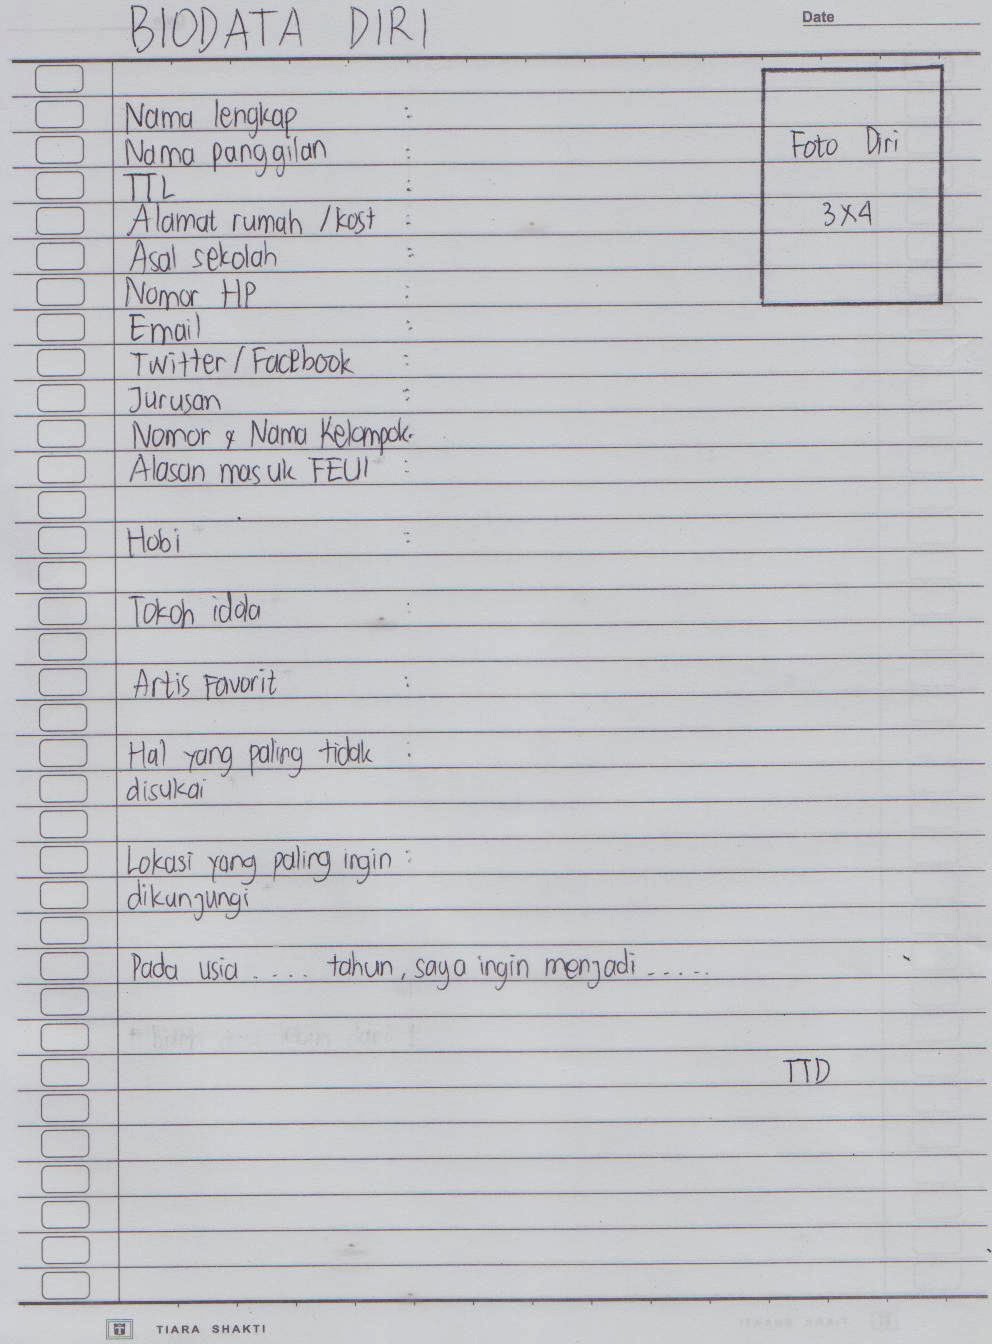 BIODATA DIRI
Date
Nama lengkap :
Nama panggilan :
Foto Diri
TTL :
Alamat rumah / kost :
3x4
Asal sekolah :
Nomor HP :
Email :
Twitter / Facebook :
Jurusan :
Nomor & Nama Kelompok :
Alasan masuk FEUI :
Hobi :
Tokoh idola :
Artis Favorit :
Hal yang paling tidak :
disukai
Lokasi yang paling ingin :
dikunjungi
Pada usia .... tahun, saya ingin menjadi .....
TTD
TIARA SHAKTI